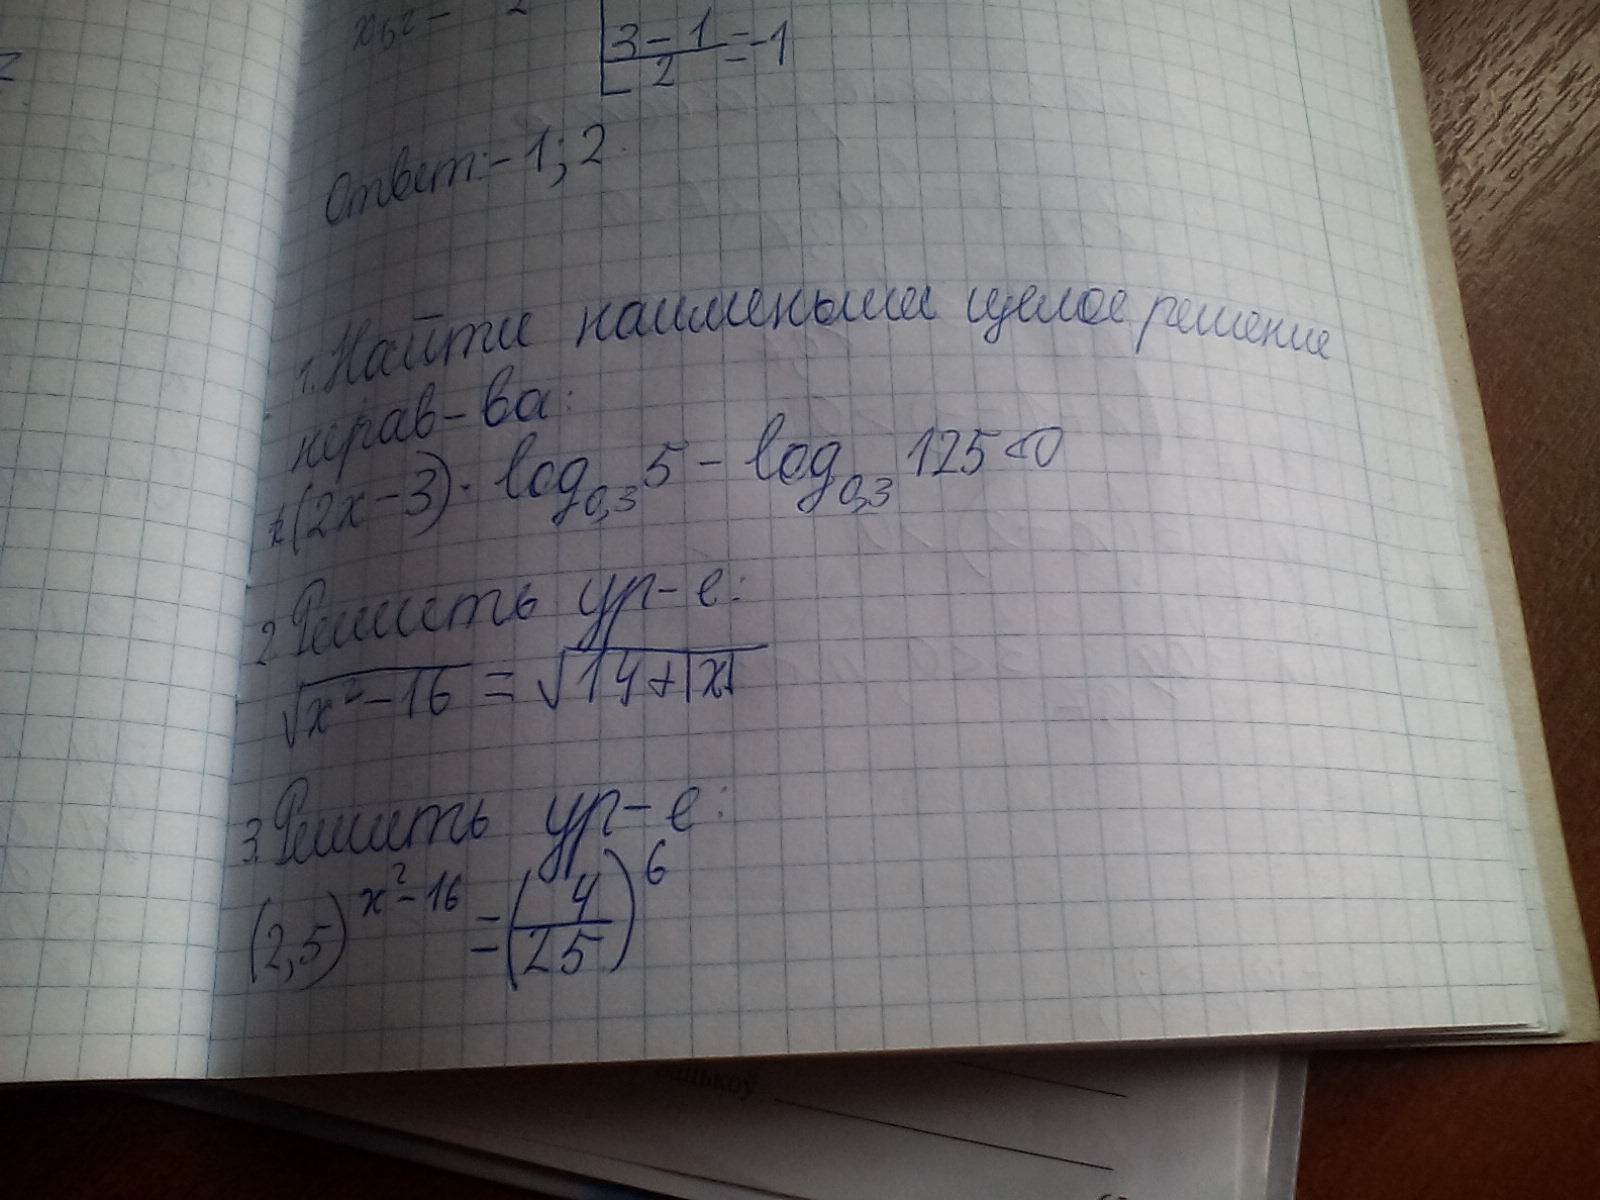 3-1/2=-1
Ответ:-1;2.
1. Найти наименьшее целое решение
нерав-ва:
(2x-3)·log₀,₃5-log₀,₃125<0
2. Решить ур-е:
√x²-16=√14+|x|
3. Решить ур-е:
(2,5)^x²-16=(4/25)^6